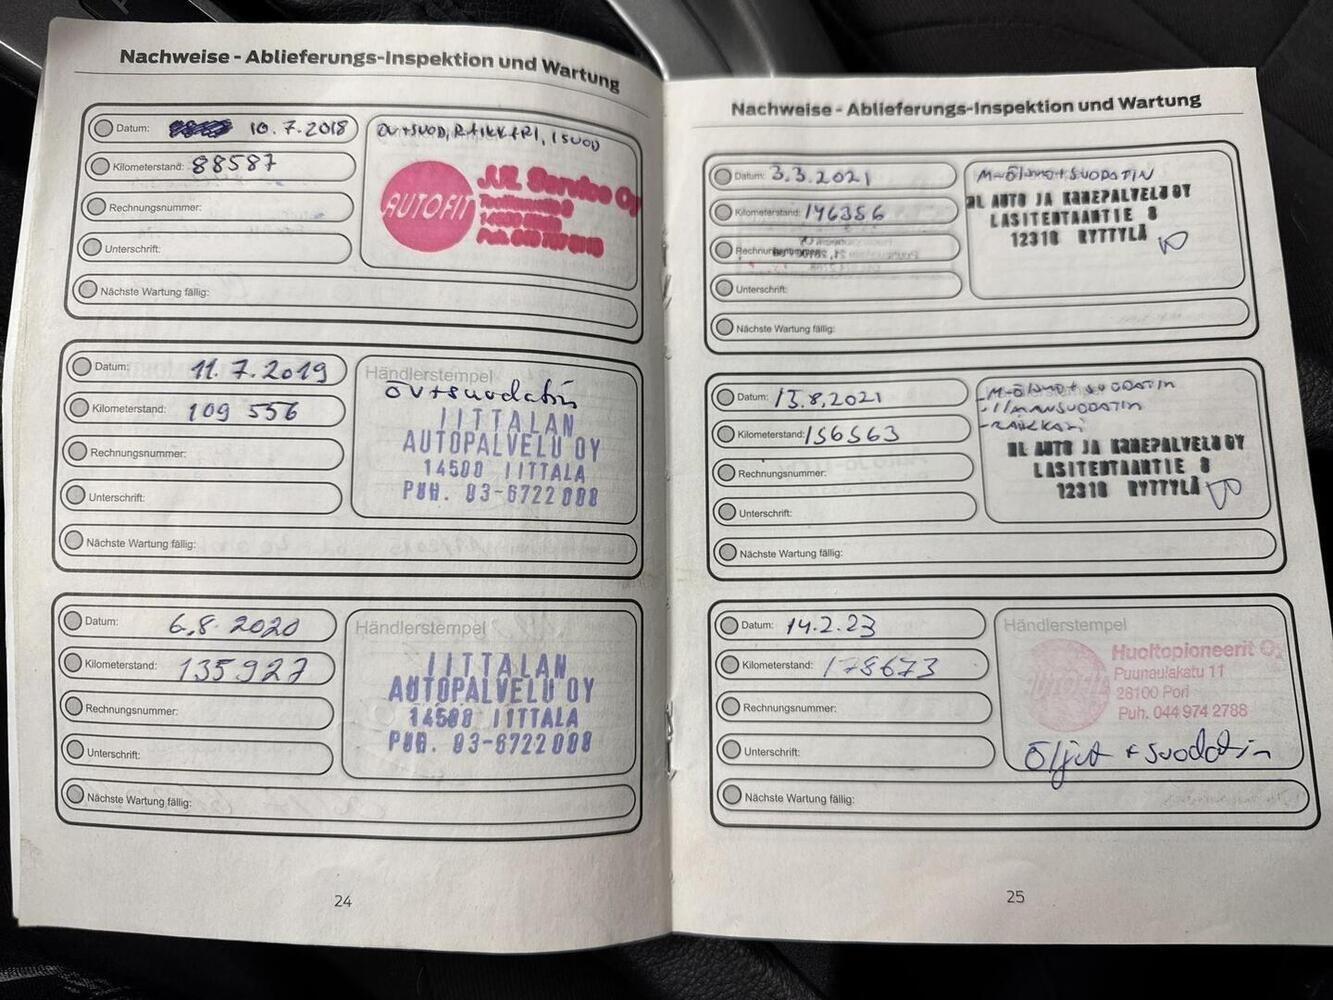 Nachweise - Ablieferungs-Inspektion und Wartung
Datum: 10.7.2018
Kilometerstand: 88587
Rechnungsnummer:
Unterschrift:
Nächste Wartung fällig:
ÖV+SUOD, RAIKKERI, ISUOD
AUTOFIT
Service Oy
Datum: 11.7.2019
Kilometerstand: 109 556
Rechnungsnummer:
Unterschrift:
Nächste Wartung fällig:
Händlerstempel
ÖV+suodatin
IITTALAN
AUTOPALVELU OY
14500 IITTALA
PUH. 03-6722008
Datum: 6.8.2020
Kilometerstand: 135927
Rechnungsnummer:
Unterschrift:
Nächste Wartung fällig:
Händlerstempel
IITTALAN
AUTOPALVELU OY
14500 IITTALA
PUH. 03-6722008
24
Nachweise - Ablieferungs-Inspektion und Wartung
Datum: 3.3.2021
Kilometerstand: 146356
Unterschrift:
Nächste Wartung fällig:
M-ÖLJYNV+SUODATIN
AUTO JA KONEPALVELU OY
LASITEHTAANTIE 8
12310 RYTTYLÄ
Datum: 13.8.2021
Kilometerstand: 156563
Rechnungsnummer:
Unterschrift:
Nächste Wartung fällig:
-ILMANSUODATIN
AUTO JA KONEPALVELU OY
LASITEHTAANTIE 8
12310 RYTTYLÄ
Datum: 14.2.23
Kilometerstand: 178673
Rechnungsnummer:
Unterschrift:
Nächste Wartung fällig:
Händlerstempel
AUTOFIT
Huoltopioneerit Oy
Puunaulakatu 11
28100 Pori
Puh. 044 974 2788
Öljyt + suodatin
25